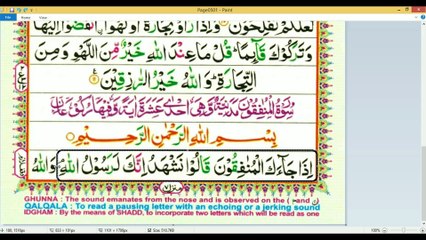 Page0921 - Paint
لَعَلَّكُمْ تُفْلِحُوْنَ ۝ وَاِذَا رَاَوْا تِجَارَةً اَوْ لَهْوَا۟ انْفَضُّوْۤا اِلَيْهَا
وَتَرَكُوْكَ قَآئِمًا ؕ قُلْ مَا عِنْدَ اللّٰهِ خَيْرٌ مِّنَ اللَّهْوِ وَمِنَ
التِّجَارَةِ ؕ وَاللّٰهُ خَيْرُ الرّٰزِقِيْنَ ۝
سُوْرَةُ الْمُنٰفِقُوْنَ مَدَنِيَّةٌ وَّهِيَ اِحْدٰى عَشْرَةَ اٰيَةً وَّفِيْهَا رُكُوْعَانِ
بِسْمِ اللّٰهِ الرَّحْمٰنِ الرَّحِيْمِ ۝
اِذَا جَآءَكَ الْمُنٰفِقُوْنَ قَالُوْا نَشْهَدُ اِنَّكَ لَرَسُوْلُ اللّٰهِ ۘ وَاللّٰهُ
منزل ٧
GHUNNA : The sound emanates from the nose and is observed on the ( ن and م )
QALQALA : To read a pausing letter with an echoing or a jerking sound
IDGHAM : By the means of SHADD, to incorporate two letters which will be read as one